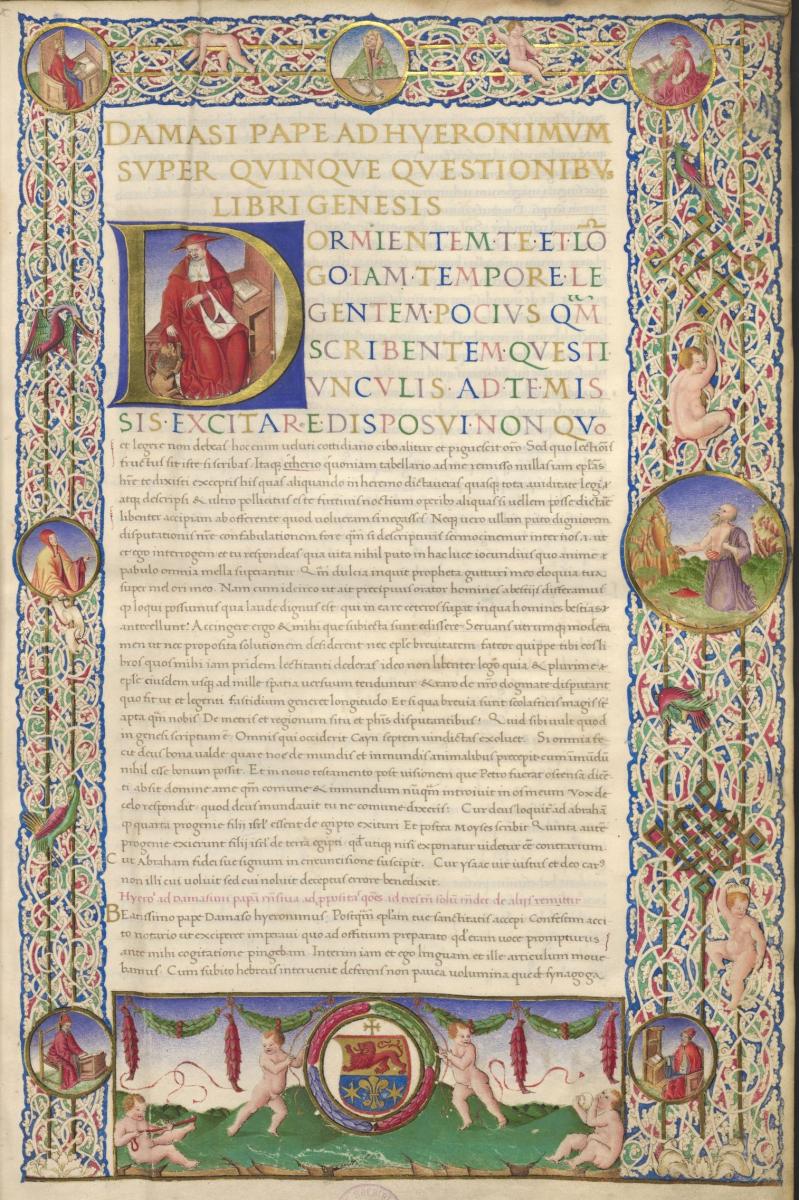 DAMASI PAPE AD HYERONIMVM
SVPER QVINQVE QVESTIONIBVS
LIBRI GENESIS
DORMIENTEM·TE·ET·LŌ
GO·IAM·TEMPORE·LE
GENTEM·POCIVS QM̄
SCRIBENTEM·QVESTI
VNCVLIS·AD·TE·MIS
SIS·EXCITARE·DISPOSVI·NON QVo
et legere non debeas hoc enim ueluti cottidiano cibo alitur et piguescit orō. Sed quo lectiōis
fructus sit iste si scribas. Itaq; et herio quoniam tabellario ad me remisso nullas iam eplās
hr̄e te dixisti exceptis his quas aliquando in heremo dictaueras quasq; tota auiditate legi &
atq; descripsi & ultro pollicitus es te furtiuis noctium operibꝰ aliquas si uellem posse dictar̄e
libenter accipiam ab offerente quod uolueram si negasses. Neq; uero ullam puto digniorem
disputationis nr̄e confabulationem fore qm̄ si de scripturis sermocinemur inter nos .i. ut
et ego interrogem et tu respondeas qua uita nihil puto in hac luce iocundius quo anime
pabulo omnia mella superantur. Qm̄ dulcia inquit propheta gutturi meo eloquia tua
super mel ori meo. Nam cum idcirco ut ait precipuus orator homines a bestijs differamus
qp loqui possumus qua laude dignus est qui in ea re ceteros supat in qua homines bestias
antecellunt. Accingere ergo & mihi que subiecta sunt edissere. Seruans utrumq; modera
men ut nec proposita solutionem desiderent nec eplē breuitatem. fateor quippe tibi eos li
bros quos mihi iam pridem lectitanti dederas ideo non libenter lego quia & plurime
eplē eiusdem usq; ad mille spatia uersuum tenduntur & raro de nr̄o dogmate disputant
quo fit ut et legenti fastidium generet longitudo. Et si qua breuia sunt scolasticis magis sīt
apta qm̄ nobis. De metris et regionum situ et phīs disputantibus. Quid sibi uult quod
in genesi scriptum ē. Omnis qui occiderit Cayn septem uindictas exoluet. Si omnia fe
cit deus bona ualde. quare noe de mundis et inmundis animalibus precepit cum īmūdū
nihil esse bonum possit. Et in nouo testamento post uisionem que Petro fuerat ostensa dicē
ti absit domine a me qm̄ comune & inmundum nūq̄m introiuit in os meum. Vox de
celo respondit quod deus mundauit tu ne comune dixeris. Cur deus loquit̄ ad abrahā
qp quarta progenie filij isrl̄ essent de egipto exituri. Et postea Moyses scribit Quinta autē
progenie exierunt filij isrl̄ de terra egipti. qd̄ utiq; nisi exponatur uidetur eē contrarium.
Cur Abraham fidei sue signum in circuncisione suscipit. Cur ysaac uir iustus et deo carꝰ
non illi cui uoluit sed cui noluit deceptus errore benedixit.
Hyero' ad Damasum papā rn̄siua ad pposita qōes ad tres tm̄ solū rn̄det de alijs remittit
BEatissimo pape Damaso hyeronimus. Postqm̄ eplam tue sanctitatis accepi. Confestim acci
to notario ut exciperet imperaui quo ad offitium preparato qd̄ eram uoce prompturus
ante mihi cogitatione pingebam. Interim iam et ego linguam et ille articulum moue
bamus. Cum subito hebreus interuenit deferens non pauca uolumina que de synagoga